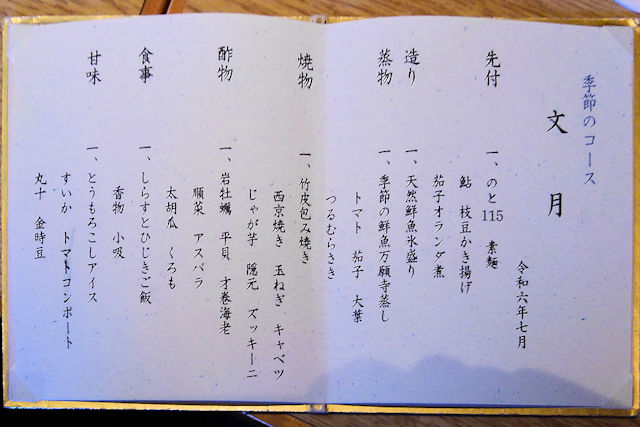 季節のコース
文月
令和六年七月
先付 一、のと115 素麺
鮎 枝豆かき揚げ
茄子オランダ煮
造り 一、天然鮮魚氷盛り
蒸物 一、季節の鮮魚万願寺蒸し
トマト 茄子 大葉
つるむらさき
焼物 一、竹皮包み焼き
西京焼き 玉ねぎ キャベツ
じゃが芋 隠元 ズッキーニ
酢物 一、岩牡蠣 平貝 才巻海老
順菜 アスパラ
太胡瓜 くろも
食事 一、しらすとひじきご飯
香物 小吸
甘味 一、とうもろこしアイス
すいか トマトコンポート
丸十 金時豆